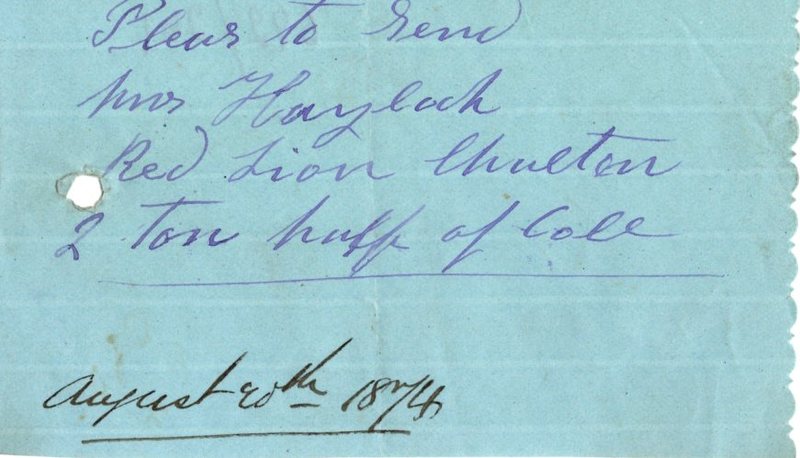 Pleas to Send
Mrs Haylock
Red Lion Chulton
2 ton huff of Cole
August 20th 1874